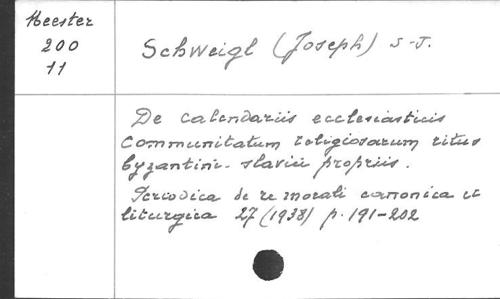 Meester
200
11
Schweigl (Joseph) S-J.
De calendariis ecclesiasticis
communitatum religiosarum ritus
byzantini-slavici propriis.
Periodica de re morali canonica et
liturgica 27 (1938) p. 191-202